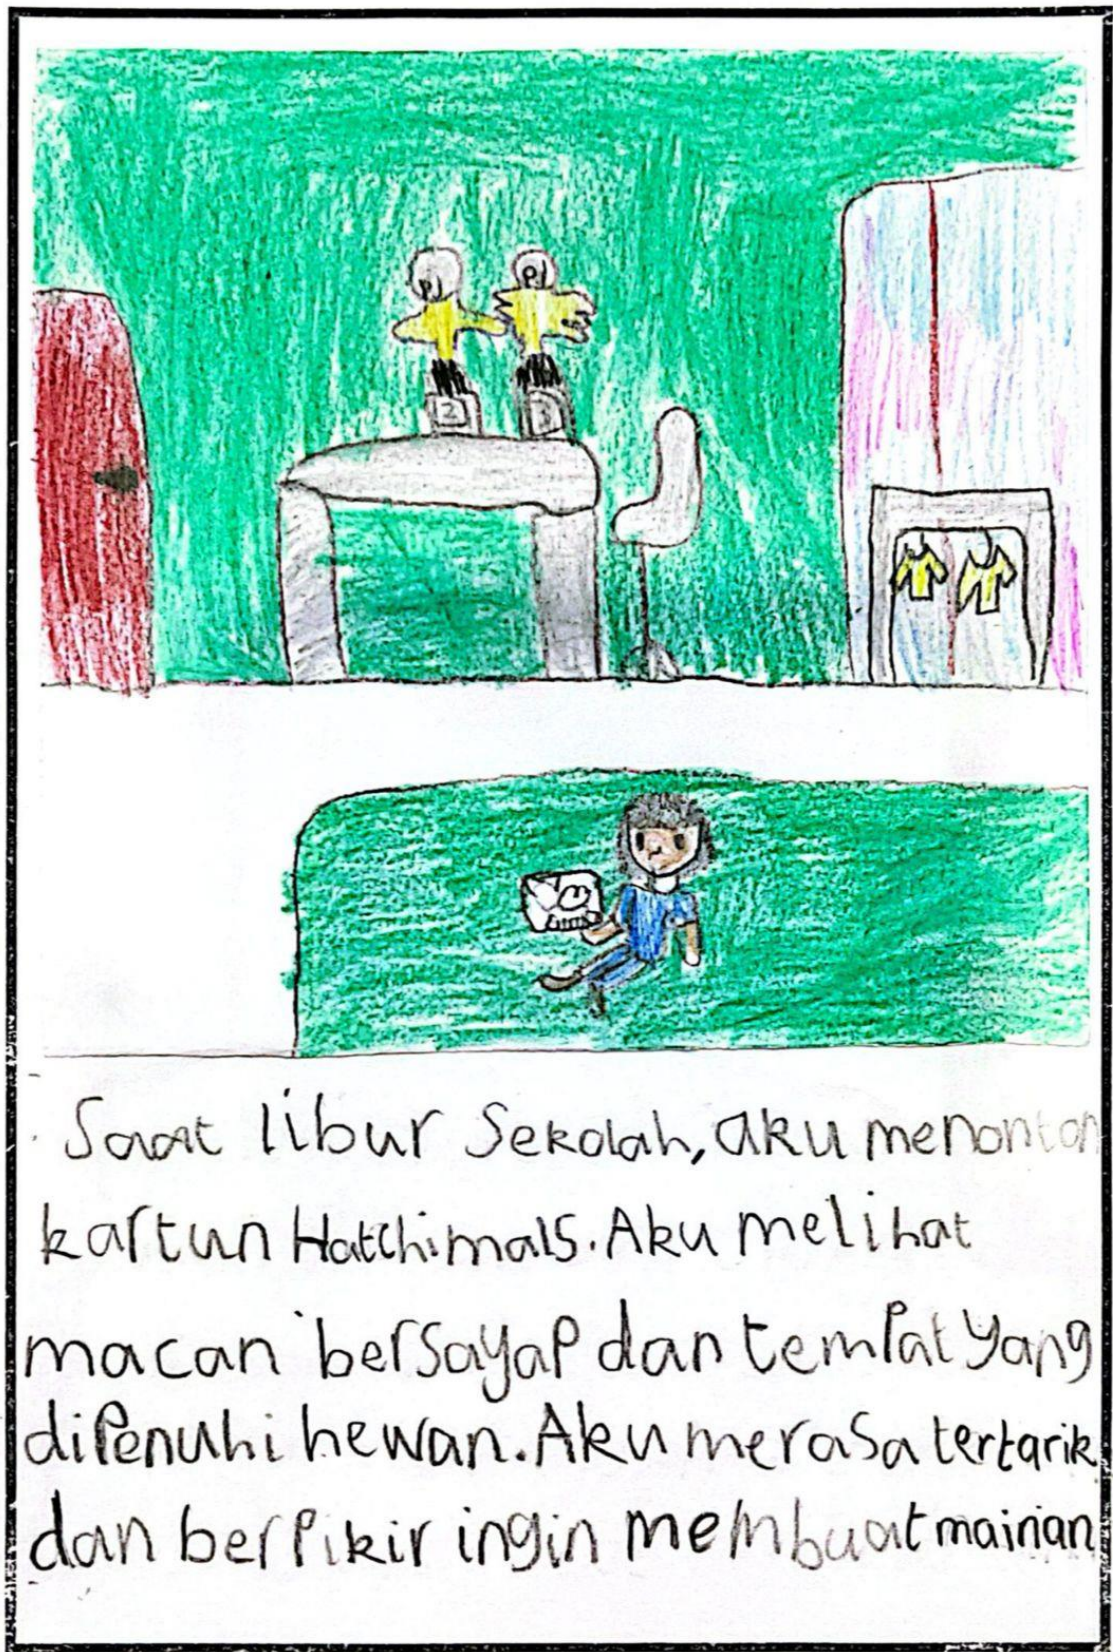 P1
P1
2
Saat libur Sekolah, aku menonton
kartun Hatchimals. Aku melihat
macan bersayap dan tempat yang
dipenuhi hewan. Aku merasa tertarik
dan berpikir ingin membuat mainan